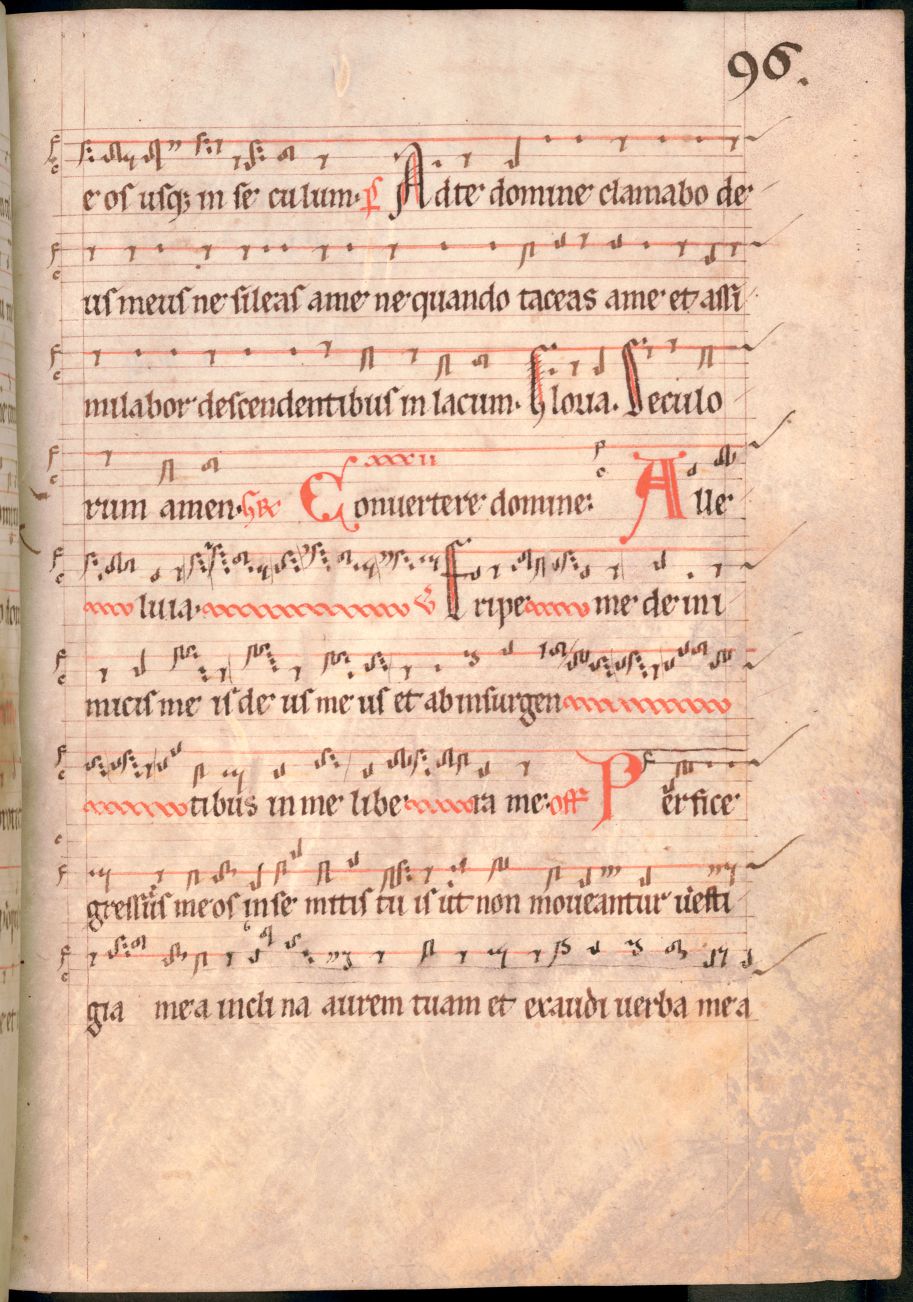 96.
e os usq; in se culum. p̃s Ad te domine clamabo de
us meus ne sileas ame ne quando taceas ame et assi
milabor descendentibus in lacum. Gloria. Seculo
rum amen. Conuertere domine. xxxii Alle
luia. v Eripe me de ini
micis me is de us me us et ab insurgen
tibus in me libe ra me. off Perfice
gressus meos in se mitis tu is ut non moueantur uesti
gia mea incli na aurem tuam et exaudi uerba mea